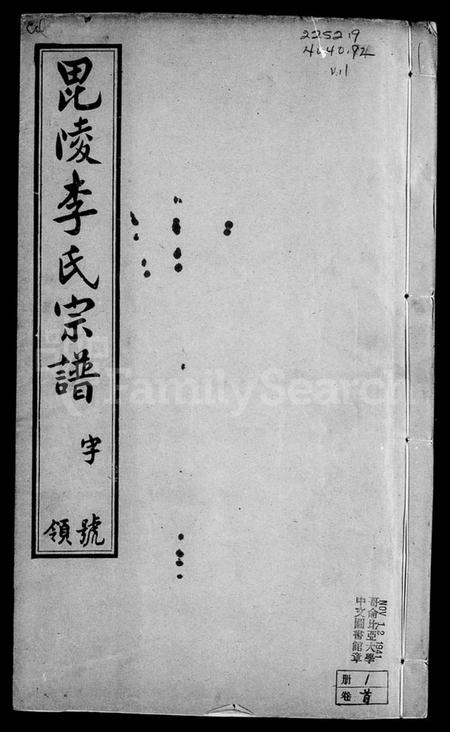 Cd
225219
4040.92
v.1
毘陵李氏宗譜
字
號領
FamilySearch
哥倫比亞大學
中文圖書館章
NOV 12 1941
册 1
卷 首